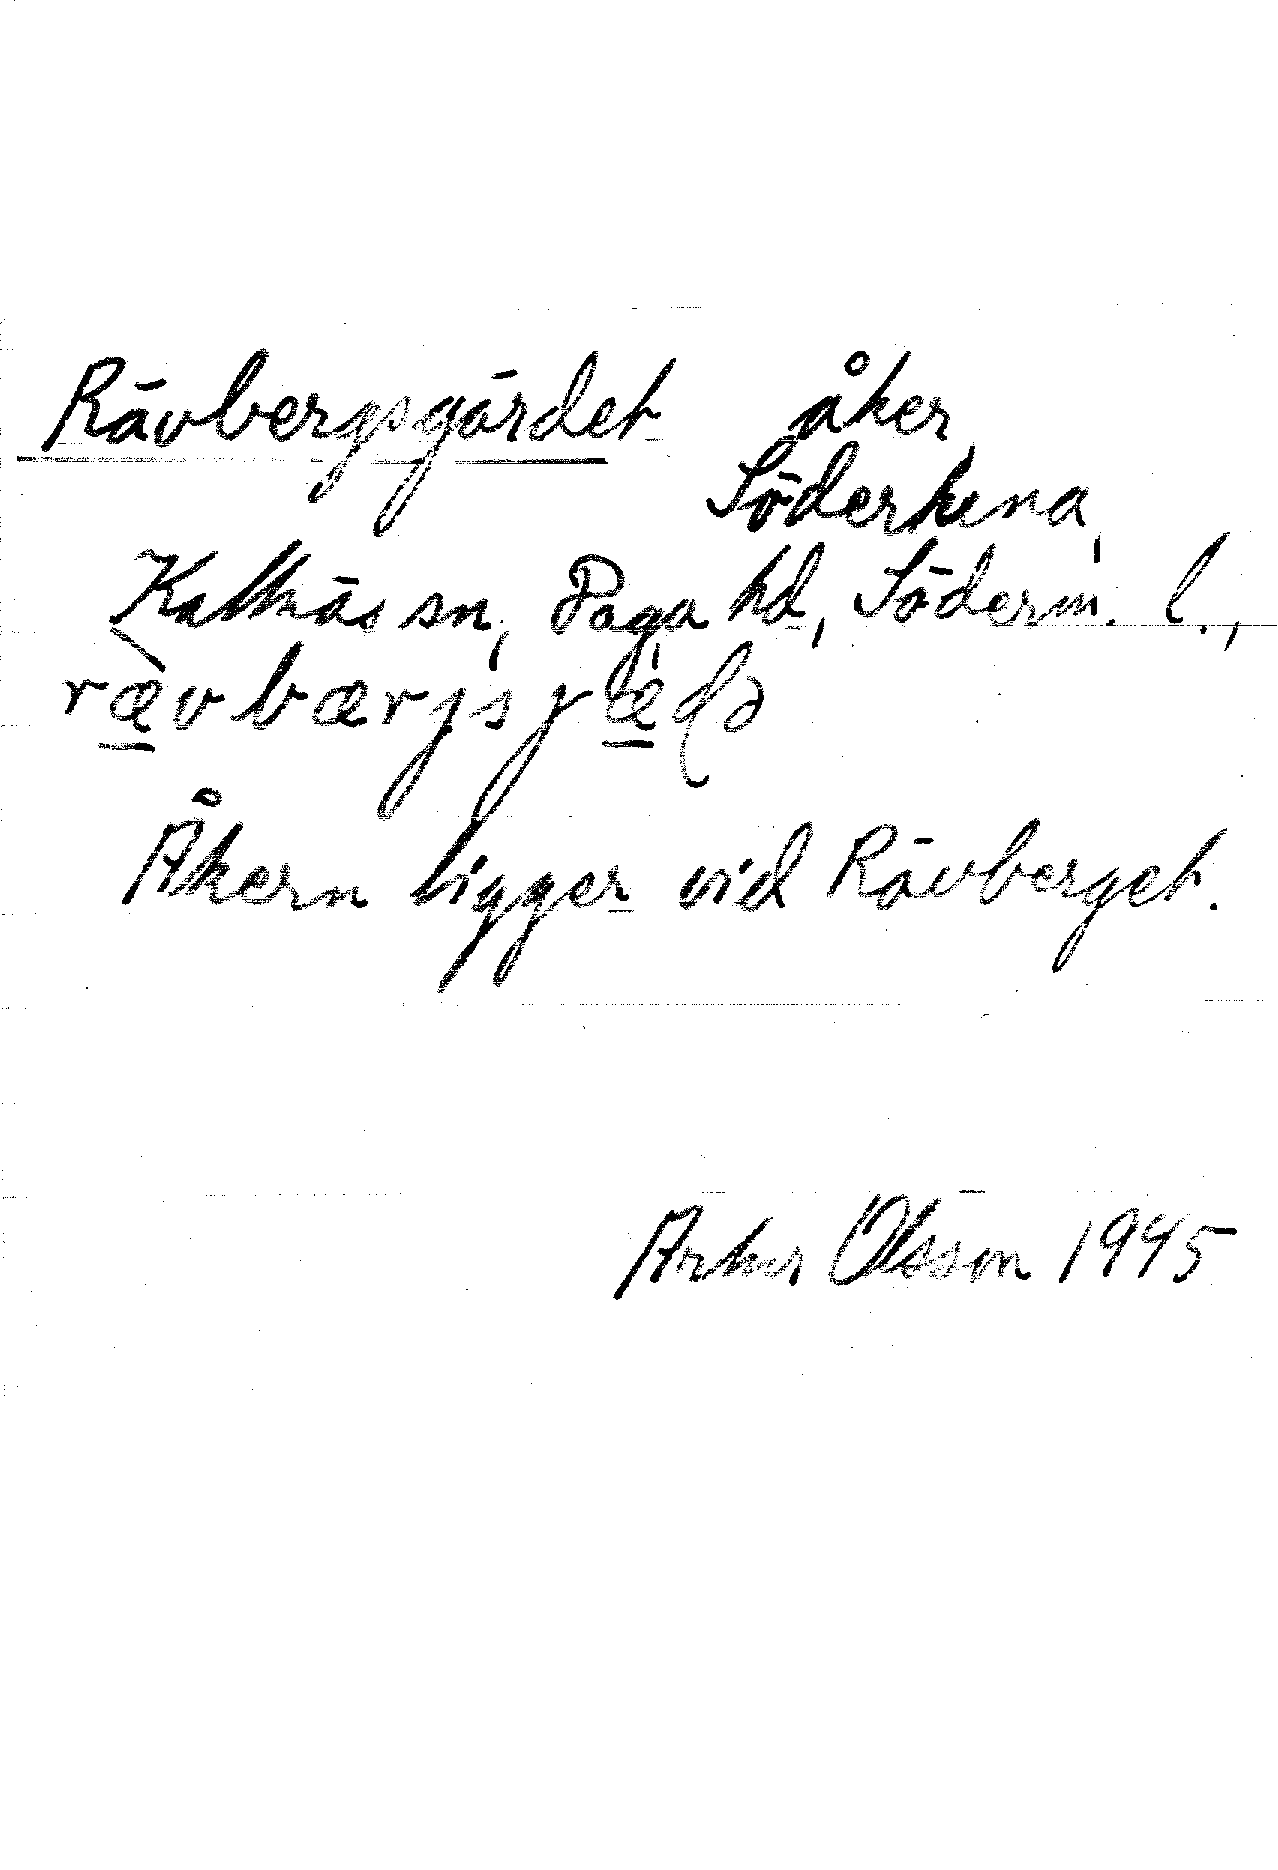 Rävbergsgärdet åker,
Södertuna,
Kattnäs sn, Daga hd, Söderm. l.,
rævbærjsjæḍə
Åkern ligger vid Rävberget.
Artur Olsson 1945